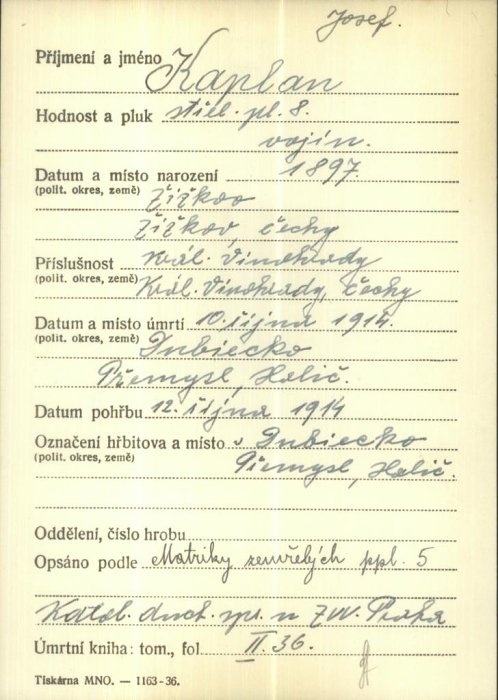 Josef.
Příjmení a jméno Kaplan
Hodnost a pluk střel. pl. 8.
vojín.
Datum a místo narození 1897.
(polit. okres, země) Žižkov
Žižkov, Čechy
Příslušnost Král. Vinohrady
(polit. okres, země) Král. Vinohrady, Čechy
Datum a místo úmrtí 10. října 1914.
(polit. okres, země) Dubiecko
Přemysl, Halič.
Datum pohřbu 12. října 1914
Označení hřbitova a místo v Dubiecko
(polit. okres, země) Přemysl, Halič.
Oddělení, číslo hrobu
Opsáno podle Matriky zemřelých ppl. 5
Katol. duch. spr. u ZVV. Praha
Úmrtní kniha: tom., fol. II. 36.
Tiskárna MNO. — 1163-36.